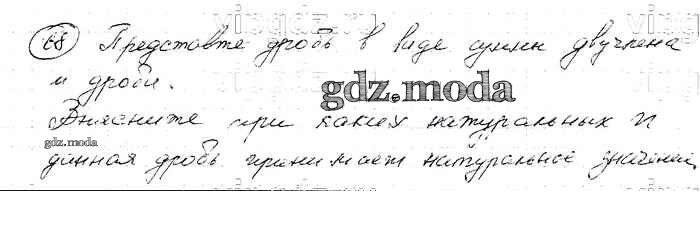 68 Представте дробь в виде сумм двучлена
и дроби.
gdz.moda
Выясните при каких натуральных n
gdz.moda
данная дробь принимает натуральное значение